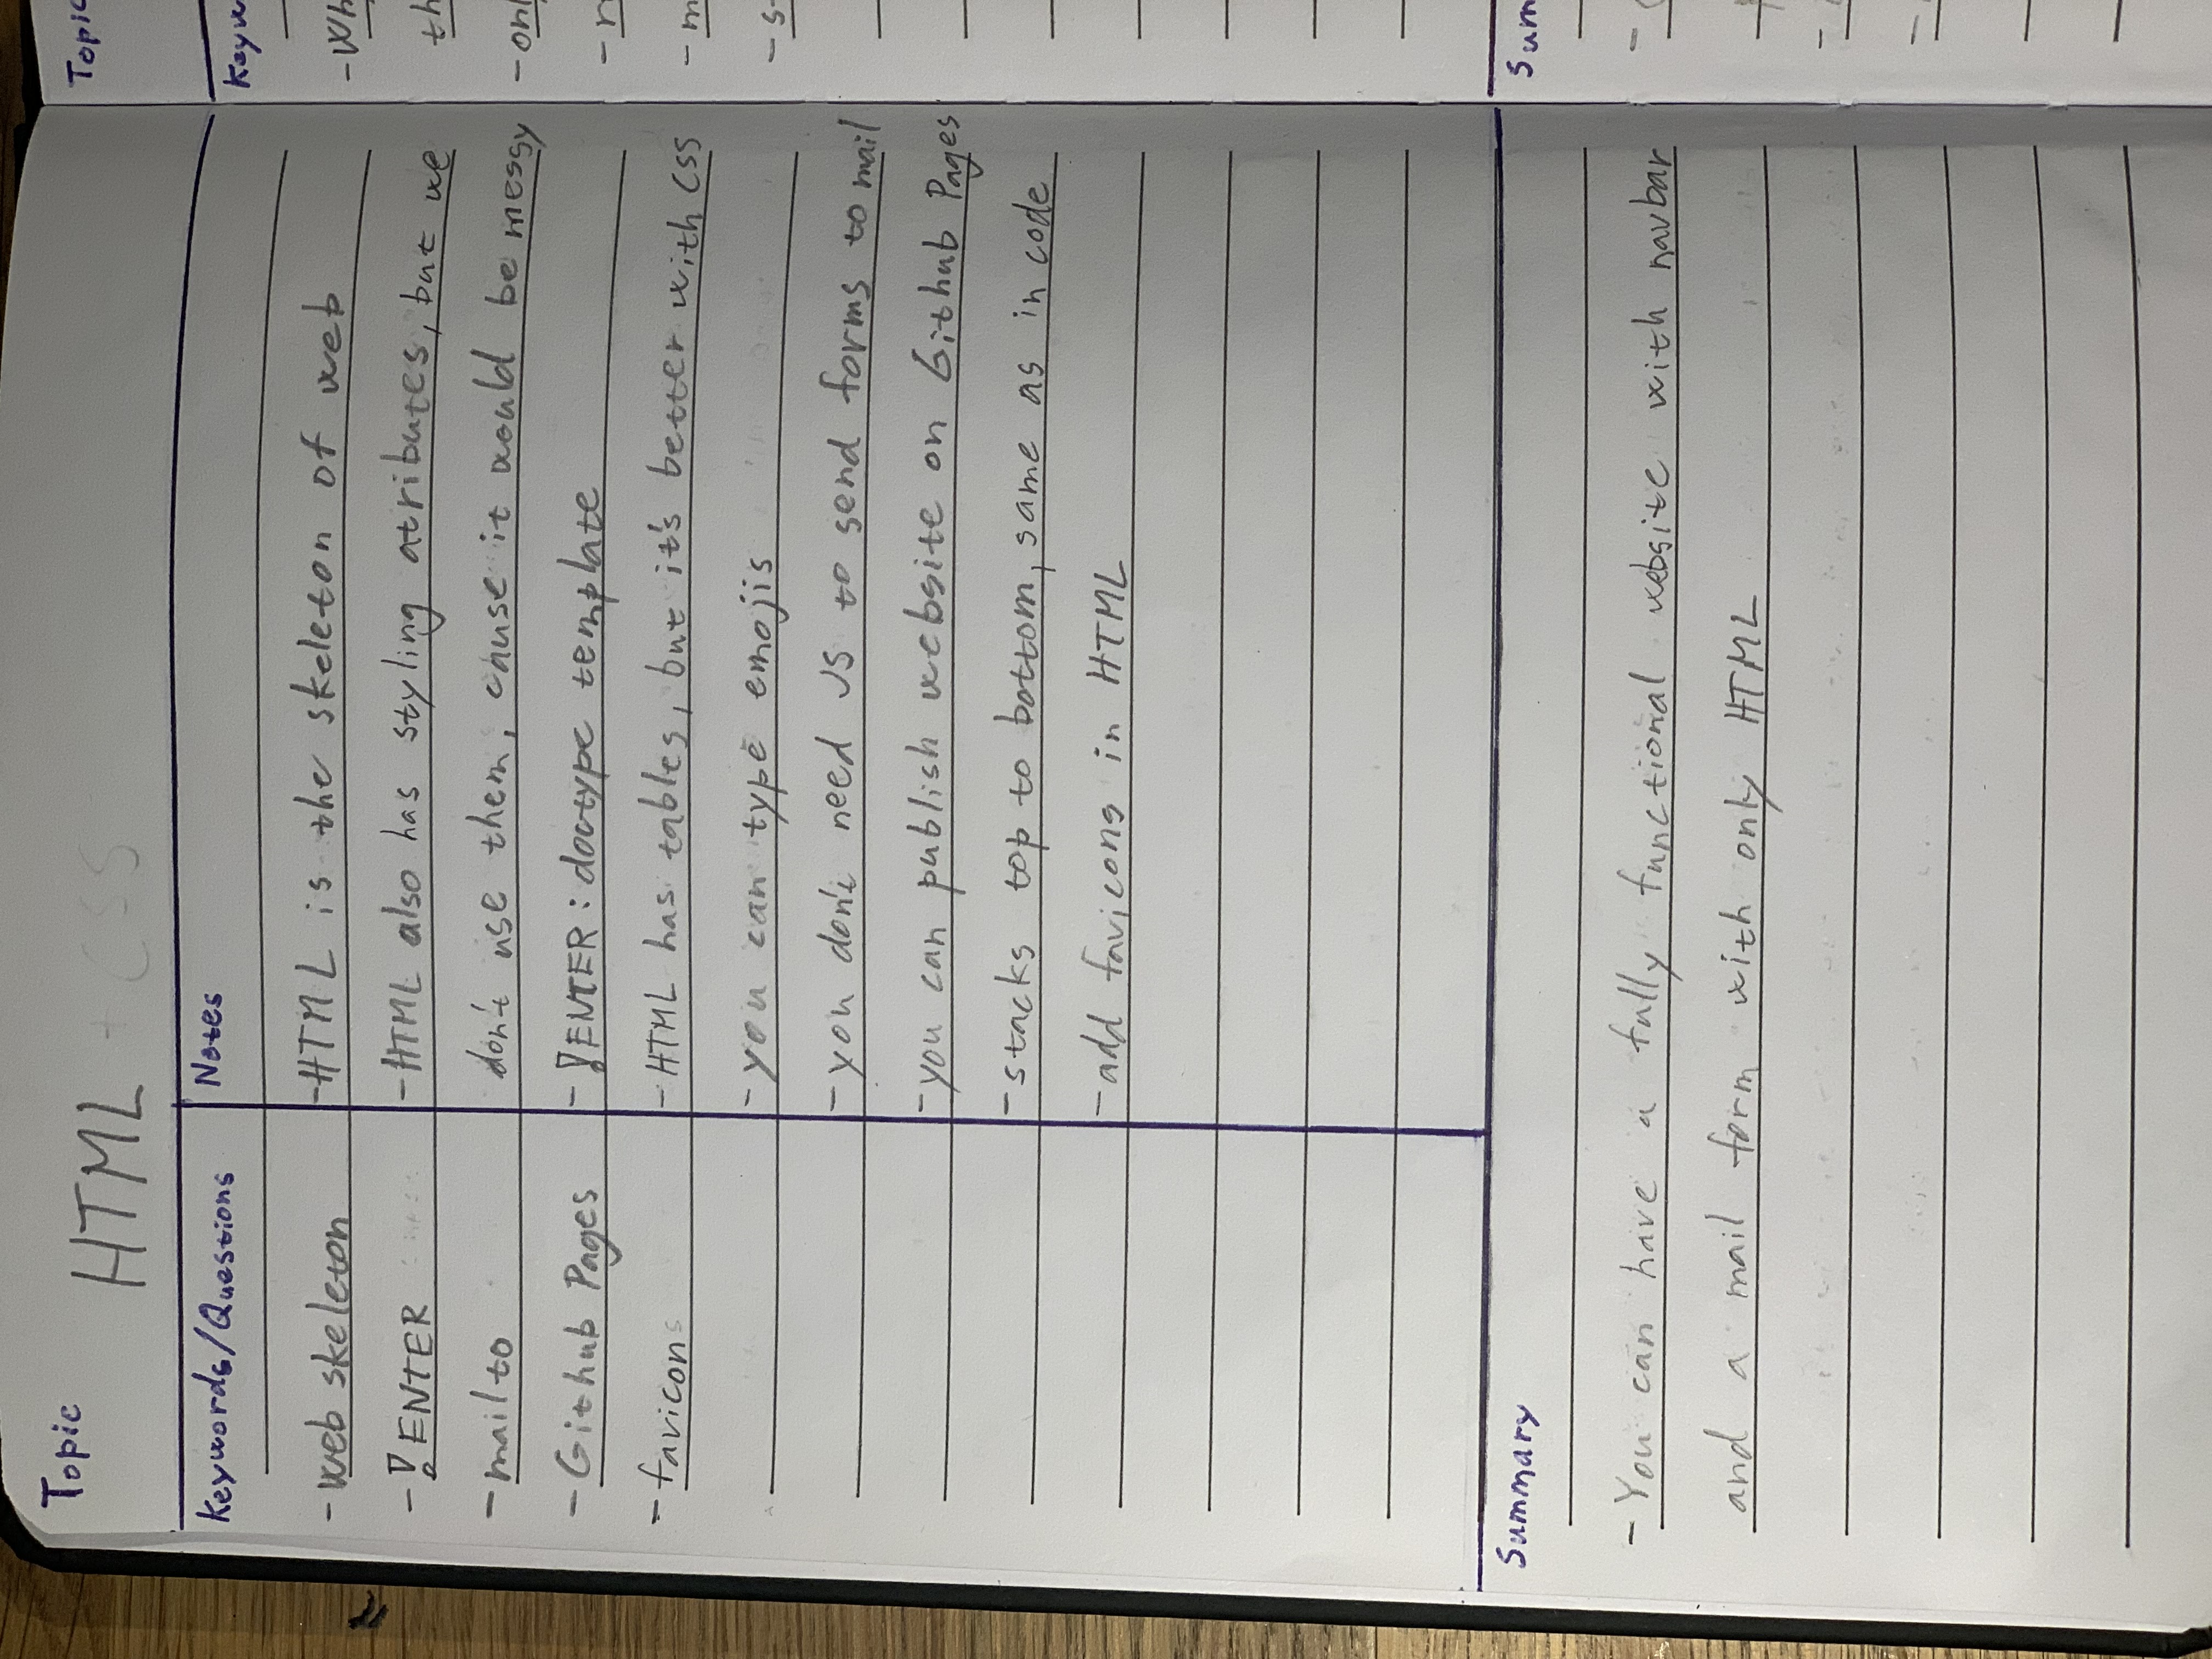 Topic
HTML + CSS
Keywords/Questions
Notes
- web skeleton
- ! ENTER
- mailto
- Github Pages
- favicons
- HTML is the skeleton of web
- HTML also has styling atributes, but we
don't use them, cause it would be messy
- ! ENTER : doctype template
- HTML has tables, but it's better with CSS
- you can type emojis
- you don't need JS to send forms to mail
- you can publish website on Github Pages
- stacks top to bottom, same as in code
- add favicons in HTML
Summary
- You can have a fully functional website with navbar
and a mail form with only HTML
Topic